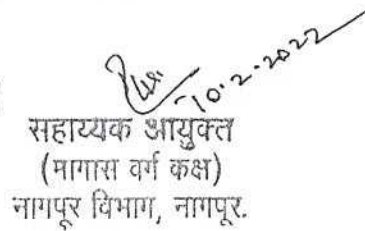 10.2.2022
सहाय्यक आयुक्त
(मागास वर्ग कक्ष)
नागपूर विभाग, नागपूर.